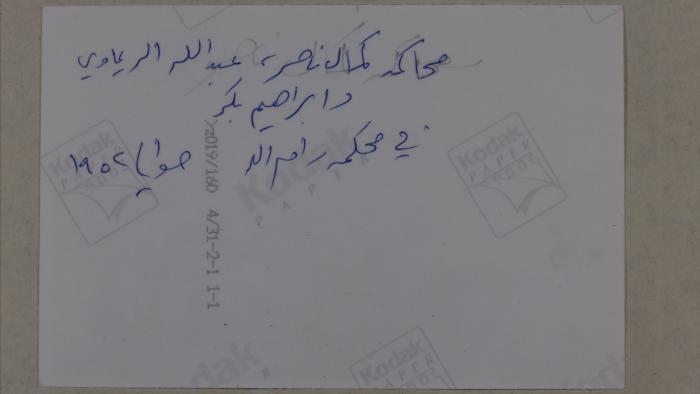 محاكمة كمال ناصر، عبد الله الريماوي
وابراهيم بكر
في محكمة رام الله حوالي ١٩٥٢
>2019/160 4/31-2-1 1-1
Kodak
PAPER
Kodak
PAPER
Kodak
PAPER
Kodak
Kodak
PAPER